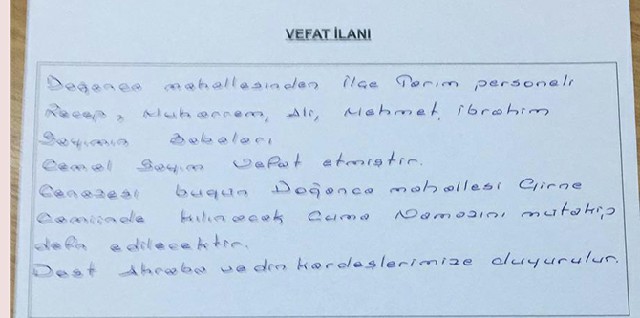 VEFAT İLANI
Doğanca mahallesinden İlçe Tarım personeli
Recep, Muharrem, Ali, Mehmet, İbrahim
Sayımın babaları
Cemal Sayım vefat etmiştir.
Cenazesi bugün Doğanca mahallesi Girne
Camiinde kılınacak Cuma Namazını mütakip
defn edilecektir.
Dost Akraba ve din kardeşlerimize duyurulur.